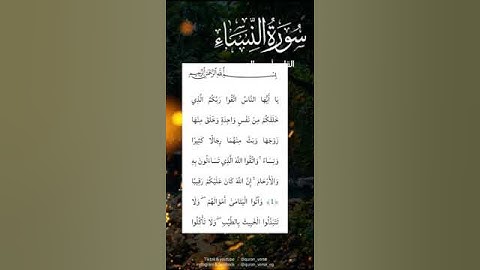 سُورَةُ النِّسَاءِ
بِسْمِ اللَّهِ الرَّحْمَٰنِ الرَّحِيمِ
يَا أَيُّهَا النَّاسُ اتَّقُوا رَبَّكُمُ الَّذِي
خَلَقَكُمْ مِنْ نَفْسٍ وَاحِدَةٍ وَخَلَقَ مِنْهَا
زَوْجَهَا وَبَثَّ مِنْهُمَا رِجَالًا كَثِيرًا
وَنِسَاءً ۚ وَاتَّقُوا اللَّهَ الَّذِي تَسَاءَلُونَ بِهِ
وَالْأَرْحَامَ ۚ إِنَّ اللَّهَ كَانَ عَلَيْكُمْ رَقِيبًا
﴿١﴾ وَآتُوا الْيَتَامَىٰ أَمْوَالَهُمْ ۖ وَلَا
تَتَبَدَّلُوا الْخَبِيثَ بِالطَّيِّبِ ۖ وَلَا تَأْكُلُوا
Tiktok & youtube : @quran_verse